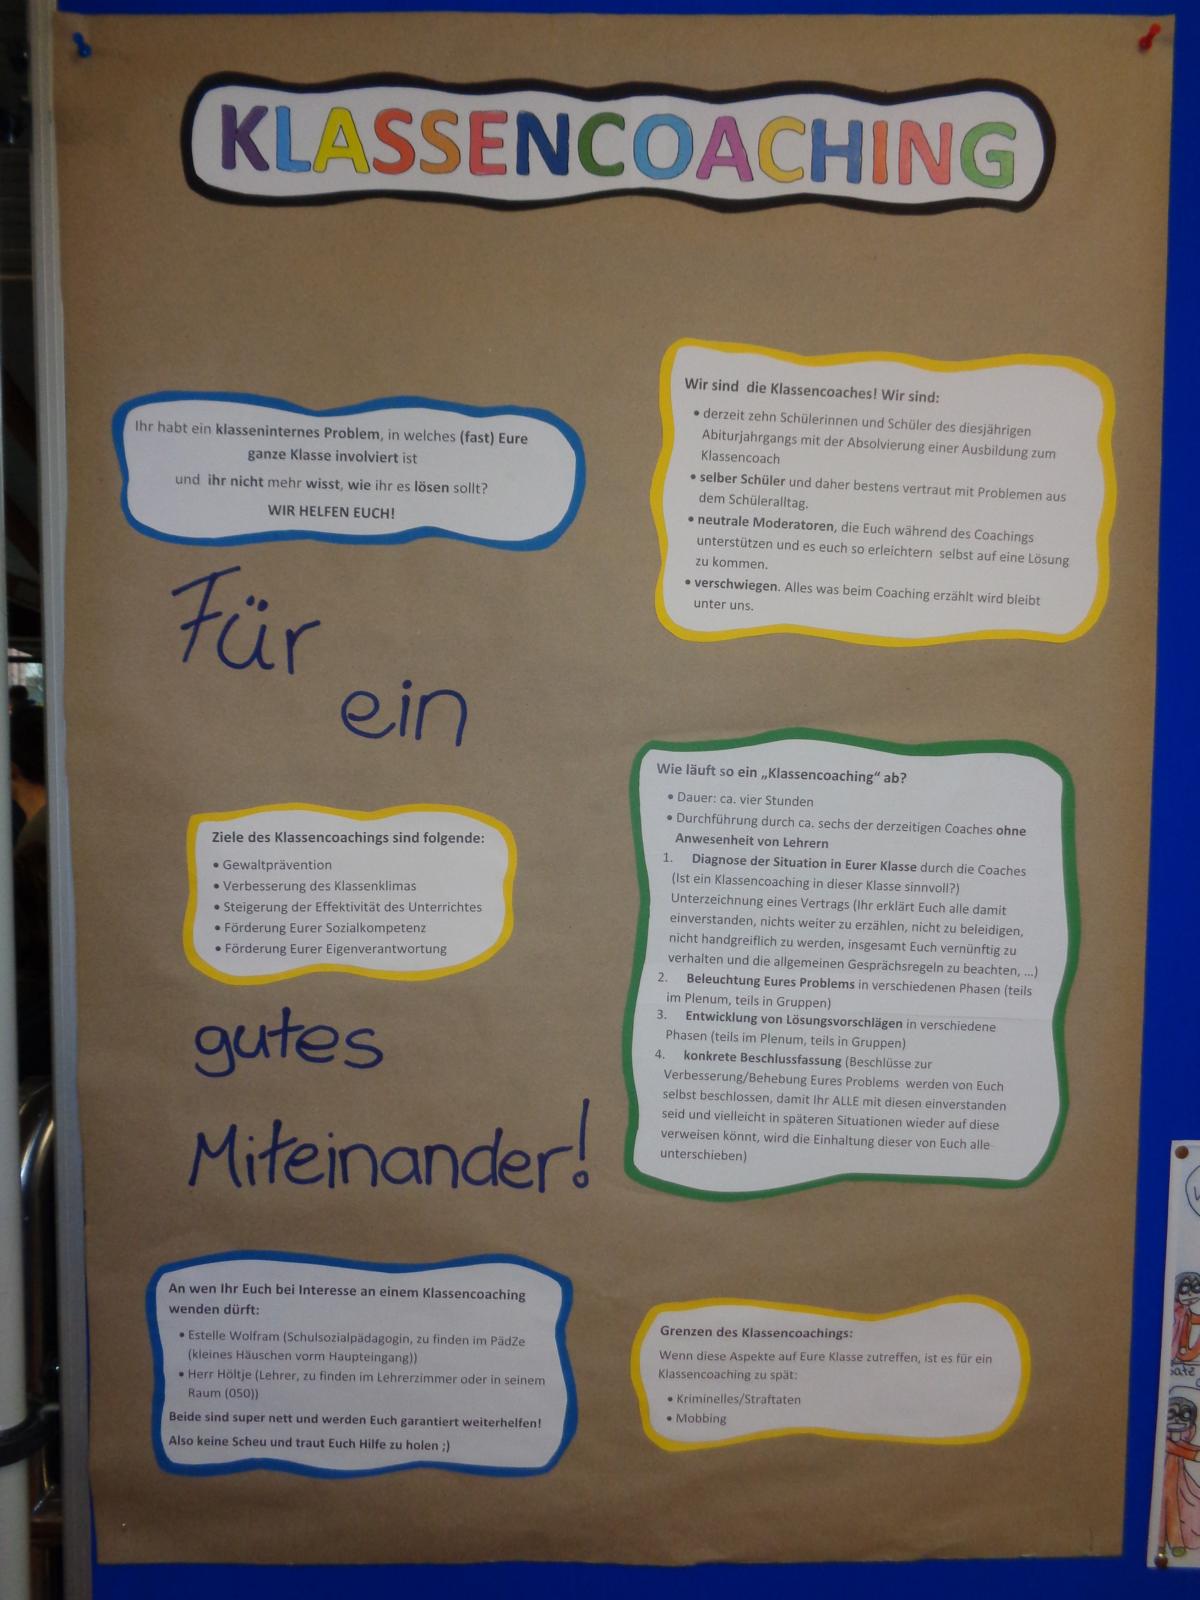 KLASSENCOACHING
Ihr habt ein klasseninternes Problem, in welches (fast) Eure
ganze Klasse involviert ist
und ihr nicht mehr wisst, wie ihr es lösen sollt?
WIR HELFEN EUCH!
Wir sind die Klassencoaches! Wir sind:
• derzeit zehn Schülerinnen und Schüler des diesjährigen
Abiturjahrgangs mit der Absolvierung einer Ausbildung zum
Klassencoach
• selber Schüler und daher bestens vertraut mit Problemen aus
dem Schüleralltag.
• neutrale Moderatoren, die Euch während des Coachings
unterstützen und es euch so erleichtern selbst auf eine Lösung
zu kommen.
• verschwiegen. Alles was beim Coaching erzählt wird bleibt
unter uns.
Für
ein
Ziele des Klassencoachings sind folgende:
• Gewaltprävention
• Verbesserung des Klassenklimas
• Steigerung der Effektivität des Unterrichtes
• Förderung Eurer Sozialkompetenz
• Förderung Eurer Eigenverantwortung
gutes
Miteinander!
Wie läuft so ein „Klassencoaching“ ab?
• Dauer: ca. vier Stunden
• Durchführung durch ca. sechs der derzeitigen Coaches ohne
Anwesenheit von Lehrern
1. Diagnose der Situation in Eurer Klasse durch die Coaches
(Ist ein Klassencoaching in dieser Klasse sinnvoll?)
Unterzeichnung eines Vertrags (Ihr erklärt Euch alle damit
einverstanden, nichts weiter zu erzählen, nicht zu beleidigen,
nicht handgreiflich zu werden, insgesamt Euch vernünftig zu
verhalten und die allgemeinen Gesprächsregeln zu beachten, ...)
2. Beleuchtung Eures Problems in verschiedenen Phasen (teils
im Plenum, teils in Gruppen)
3. Entwicklung von Lösungsvorschlägen in verschiedene
Phasen (teils im Plenum, teils in Gruppen)
4. konkrete Beschlussfassung (Beschlüsse zur
Verbesserung/Behebung Eures Problems werden von Euch
selbst beschlossen, damit Ihr ALLE mit diesen einverstanden
seid und vielleicht in späteren Situationen wieder auf diese
verweisen könnt, wird die Einhaltung dieser von Euch alle
unterschieben)
An wen Ihr Euch bei Interesse an einem Klassencoaching
wenden dürft:
• Estelle Wolfram (Schulsozialpädagogin, zu finden im PädZe
(kleines Häuschen vorm Haupteingang))
• Herr Höltje (Lehrer, zu finden im Lehrerzimmer oder in seinem
Raum (050))
Beide sind super nett und werden Euch garantiert weiterhelfen!
Also keine Scheu und traut Euch Hilfe zu holen ;)
Grenzen des Klassencoachings:
Wenn diese Aspekte auf Eure Klasse zutreffen, ist es für ein
Klassencoaching zu spät:
• Kriminelles/Straftaten
• Mobbing